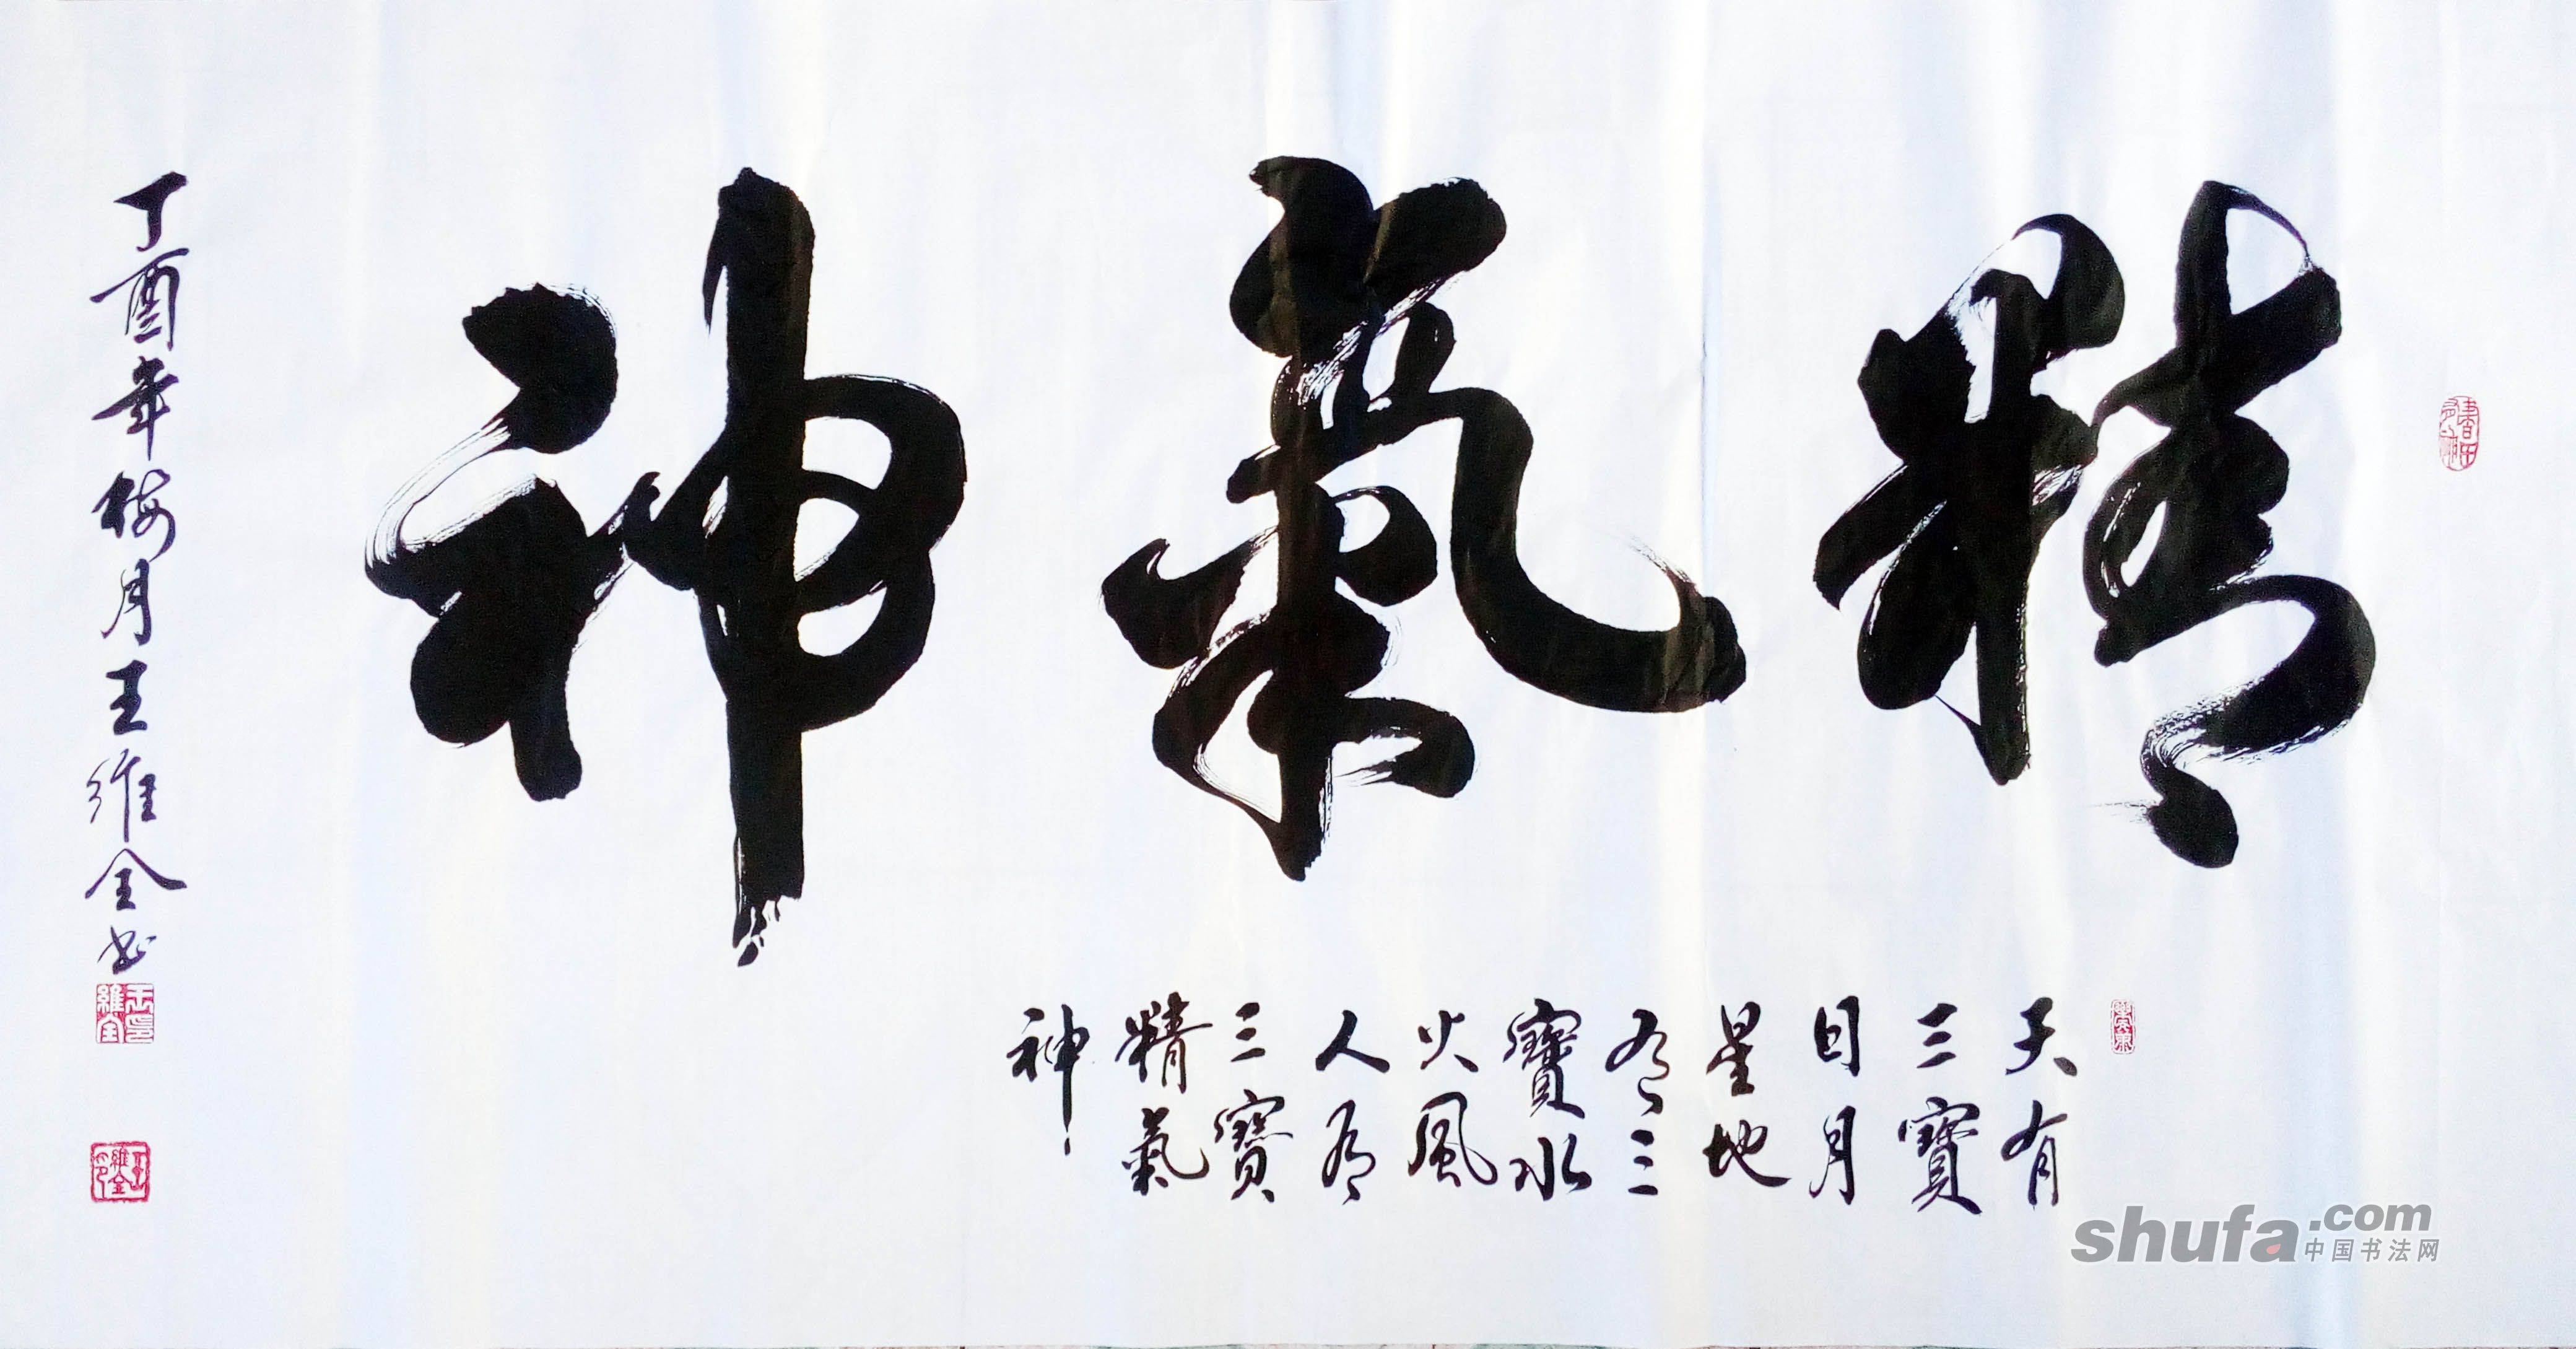 精氣神
天有
三寶
日月
星地
有三
寶水
火風
人有
三寶
精氣
神
丁酉年梅月王維全书
王印維全
shufa.com
中国书法网